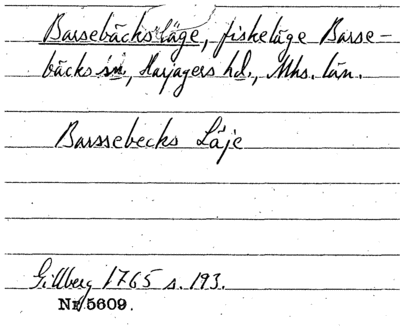 Barsebäcks läge, fiskeläge Barse-
bäcks sn, Harjagers hd., Mhs. län.
Barssebecks Läje
Gillberg 1765 s. 193.
Nr 5609.